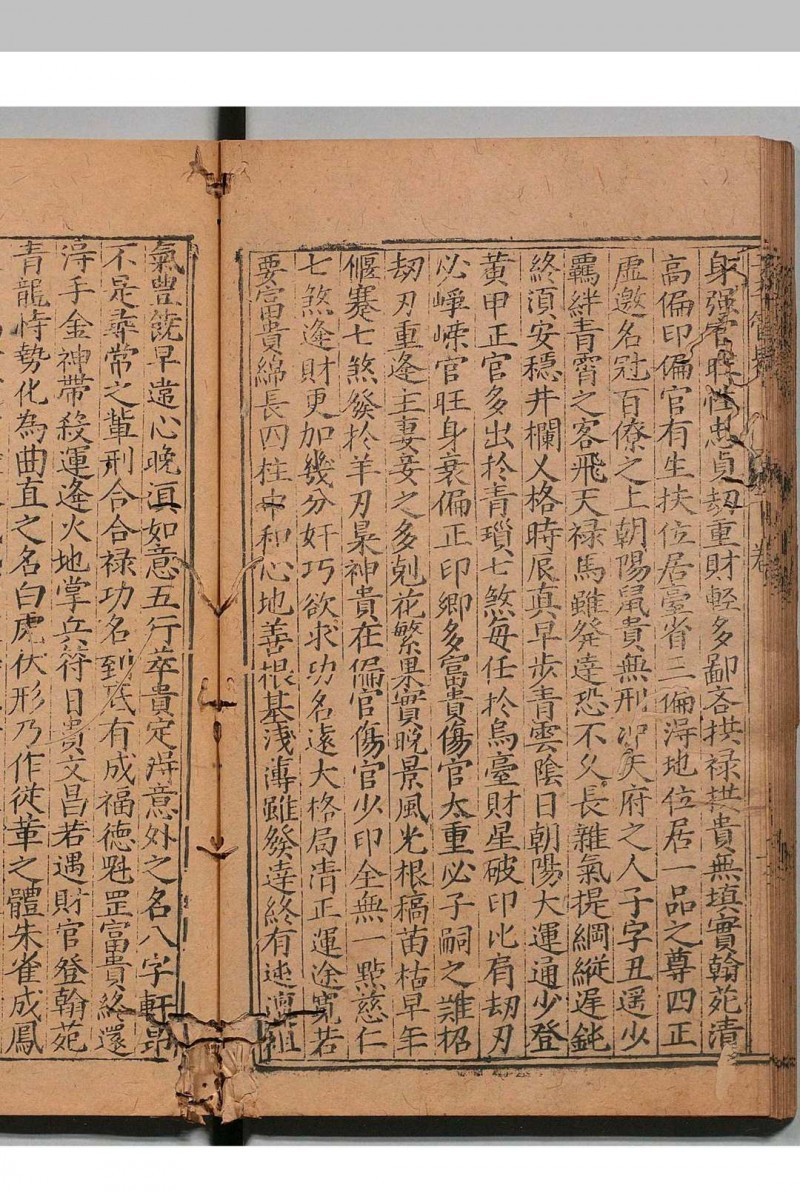 身强官旺性忠貞刼重財輕多鄙吝拱禄拱貴無填實翰苑清
高偏印偏官有生扶位居臺省三偏淂地位居一品之尊四正
虚邀名冠百僚之上朝陽鼠貴無刑冲矣府之人子字丑遥少
羈絆青霄之客飛天禄馬雖發達恐不久長雜氣提綱縦遲鈍
終須安穏井欄乂格時辰真早步青雲陰日朝陽大運通少登
黄甲正官多出扵青瑣七煞每任扵烏臺財星破印比肩刼刃
必崢嶸官旺身衰偏正印鄉多富貴傷官太重必子嗣之難招
刼刃重逢主妻妾之多剋花繁果實晩景風光根稿苗枯早年
偃蹇七煞發扵羊刃梟神貴在偏官傷官少印全無一點慈仁
七煞逢財更加幾分奸巧欲求功名逺大格局清正運途寛若
要富貴綿長四柱中和心地善根基淺薄雖發達終有迍邅祖
氣豊饒早違心晩滇如意五行萃貴定淂意外之名八字軒昂
不是尋常之輩刑合合禄功名到底有成福德魁罡富貴終還
淂手金神帶殺運逢火地掌兵符日贵文昌若遇財官登翰苑
青龍恃勢化為曲直之名白虎伏形乃作従革之體朱雀成鳳